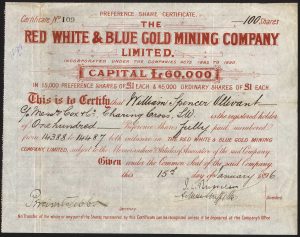 PREFERENCE SHARE CERTIFICATE.
Certificate No 109
100 Shares
THE
RED WHITE & BLUE GOLD MINING COMPANY
LIMITED.
INCORPORATED UNDER THE COMPANIES ACTS 1862 TO 1890
CAPITAL £60,000
IN 15,000 PREFERENCE SHARES OF £1 EACH & 45,000 ORDINARY SHARES OF £1 EACH
This is to Certify that William Spencer
Cox & Co Charing Cross, is the registered holder
of One hundred Preference Shares fully paid numbered
from 14388 to 14487 both inclusive in the RED WHITE & BLUE GOLD MINING
COMPANY LIMITED, subject to the Memorandum & Articles of Association of the said Company
Given under the Common Seal of the said Company
this 15th day of January 1896
No Transfer of the whole or any part of the Shares represented by this Certificate can be registered unless delivered at the Company's Office